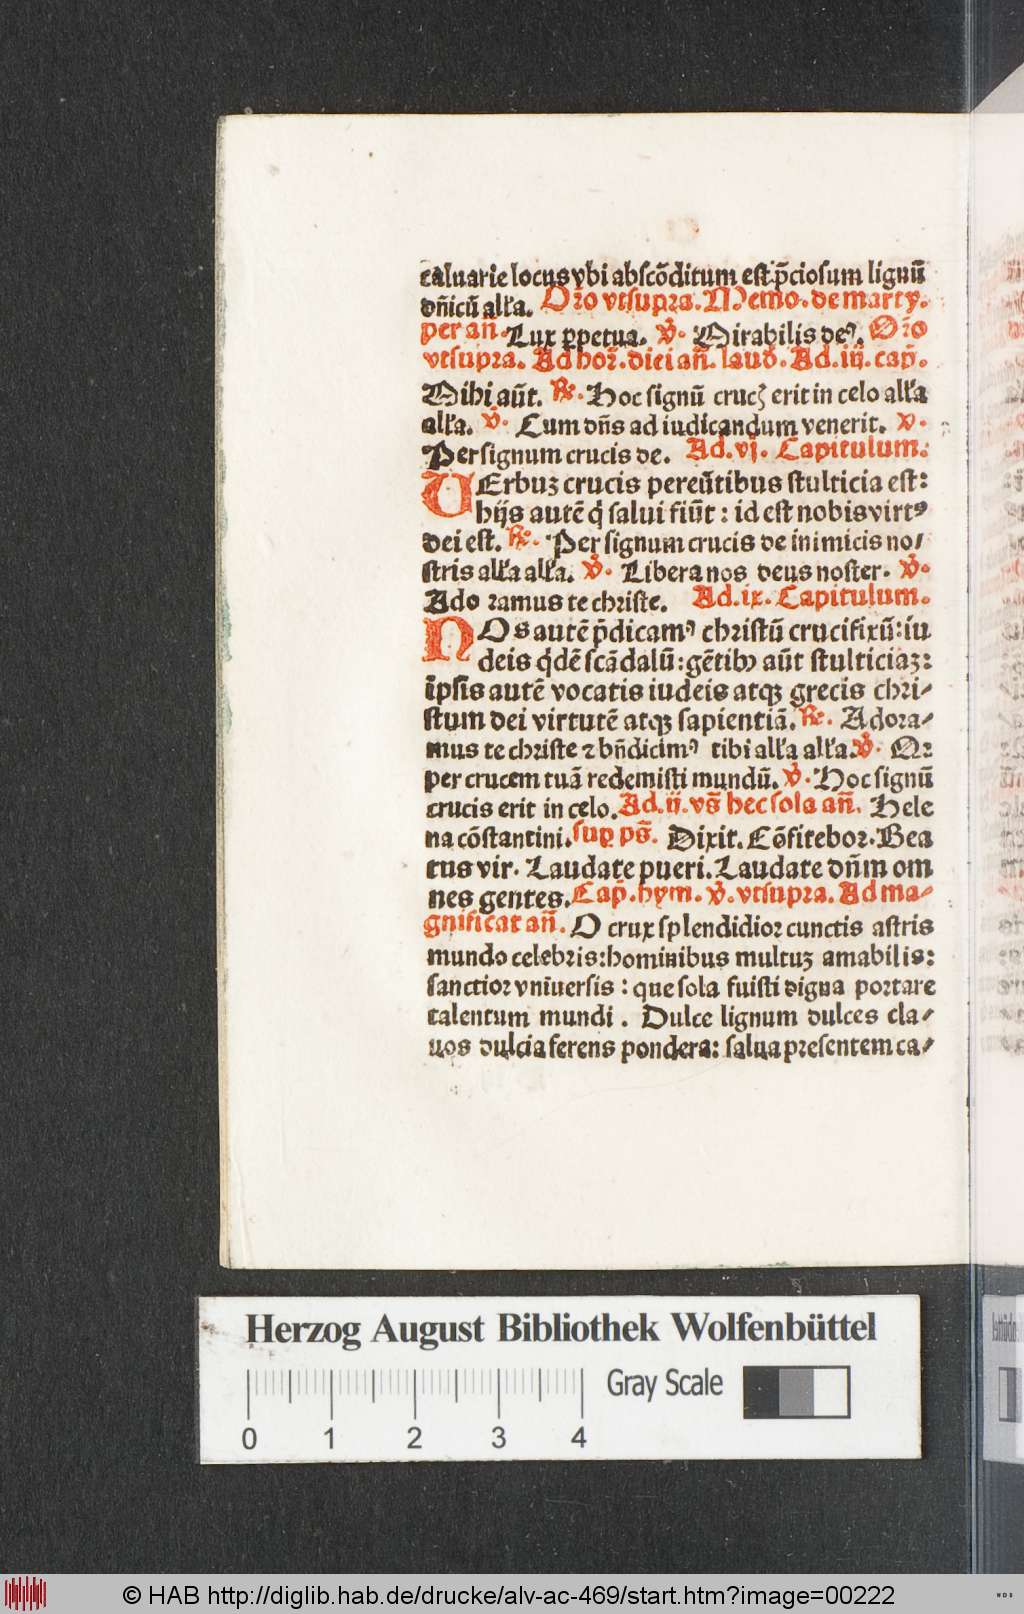 caluarie locus vbi abscōditum est p̄ciosum lignū
dn̄icū all'a. Or̄o vtsupra. Memo. de marty.
per an̄. Lux ꝑpetua. v̓. Mirabilis deꝰ. Or̄o
vtsupra. Ad hor̄. diei an̄. laud. Ad. iij. cap̄.
Mihi aūt. R̓. Hoc signū crucꝫ erit in celo all'a
all'a. v̓. Cum dn̄s ad iudicandum venerit. v.
Per signum crucis de. Ad. vj. Capitulum.
VErbuꝫ crucis pereūtibus stulticia est:
hijs autē q̇ salui fiūt: id est nobis virtꝰ
dei est. R̓. Per signum crucis de inimicis no⸗
stris all'a all'a. v̓. Libera nos deus noster. v̓.
Ado ramus te christe. Ad. ix. Capitulum.
NOs autē p̄dicamꝰ christū crucifixū: iu
deis q̇dē scādalū: gētibꝰ aūt stulticiaꝫ:
ip̄sis autē vocatis iudeis atqꝫ grecis chri⸗
stum dei virtutē atqꝫ sapientiā. R̓. Adora⸗
mus te christe ⁊ bn̄dicimꝰ tibi all'a all'a. v̓. Q2
per crucem tuā redemisti mundū. v̓. Hoc signū
crucis erit in celo. Ad. ij. vs̄ hec sola an̄. Hele
na cōstantini. suꝑ ps̄. Dixit. Cōfitebor. Bea
tus vir. Laudate pueri. Laudate dn̄m om
nes gentes. Cap̄. hym. v̓. vtsupra. Ad ma⸗
gnificat an̄. O crux splendidior cunctis astris
mundo celebris: hominibus multuꝫ amabilis:
sanctior vniuersis: que sola fuisti digna portare
talentum mundi. Dulce lignum dulces cla⸗
uos dulcia ferens pondera: salua presentem ca⸗
Herzog August Bibliothek Wolfenbüttel
Gray Scale
0 1 2 3 4
© HAB http://diglib.hab.de/drucke/alv-ac-469/start.htm?image=00222